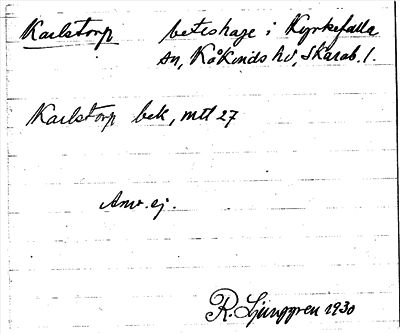 Karlstorp beteshage i Kyrkefalla
sn, Kåkinds hd, Skarab. l.
Karlstorp bek, mtl 27
Anv. ej.
R. Ljunggren 1930